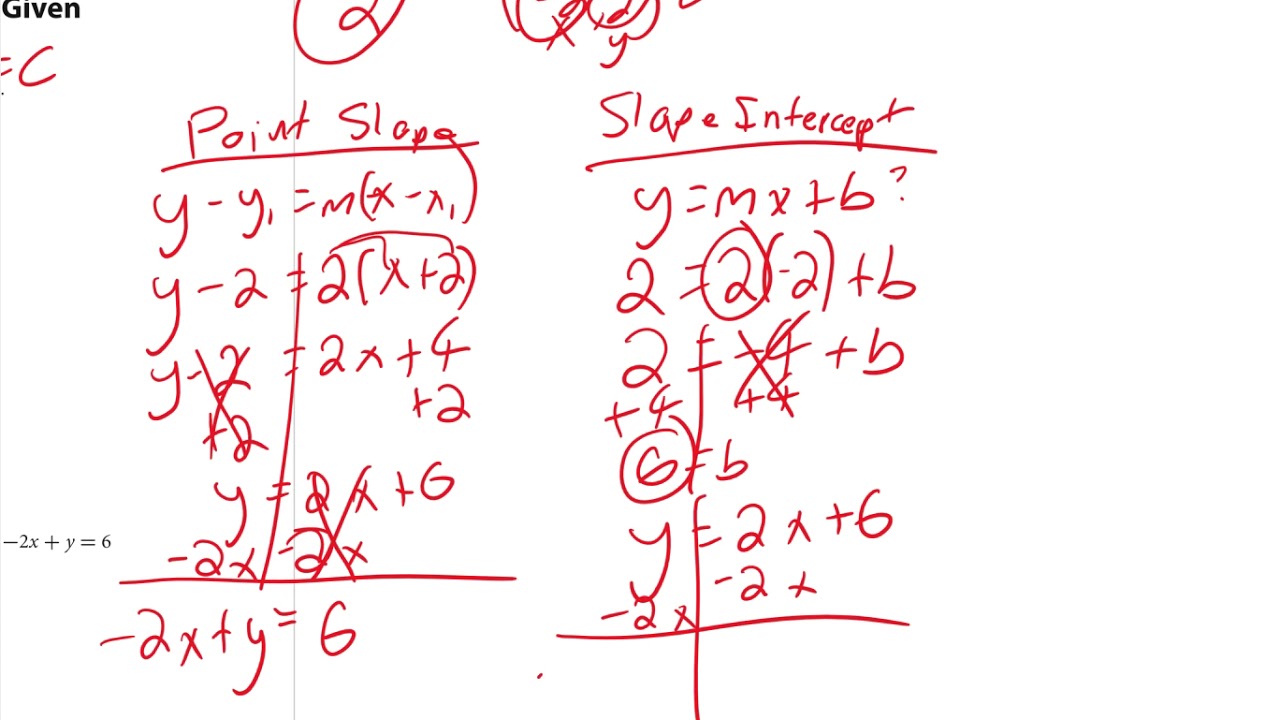 Given
2
=C
x y
Point Slope
y - y₁ = m(x - x₁)
y - 2 = 2(x + 2)
y - 2 = 2x + 4
+2 +2
y = 2x + 6
-2x -2x
-2x + y = 6
−2x + y = 6
Slope Intercept
y = mx + b?
2 = 2(-2) + b
2 = -4 + b
+4 +4
6 = b
y = 2x + 6
-2x -2x